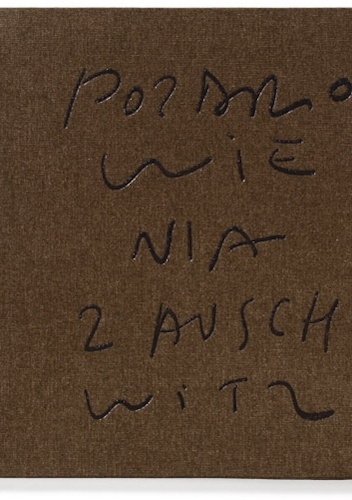 POZDRO
WIE
NIA
Z AUSCH
WITZ